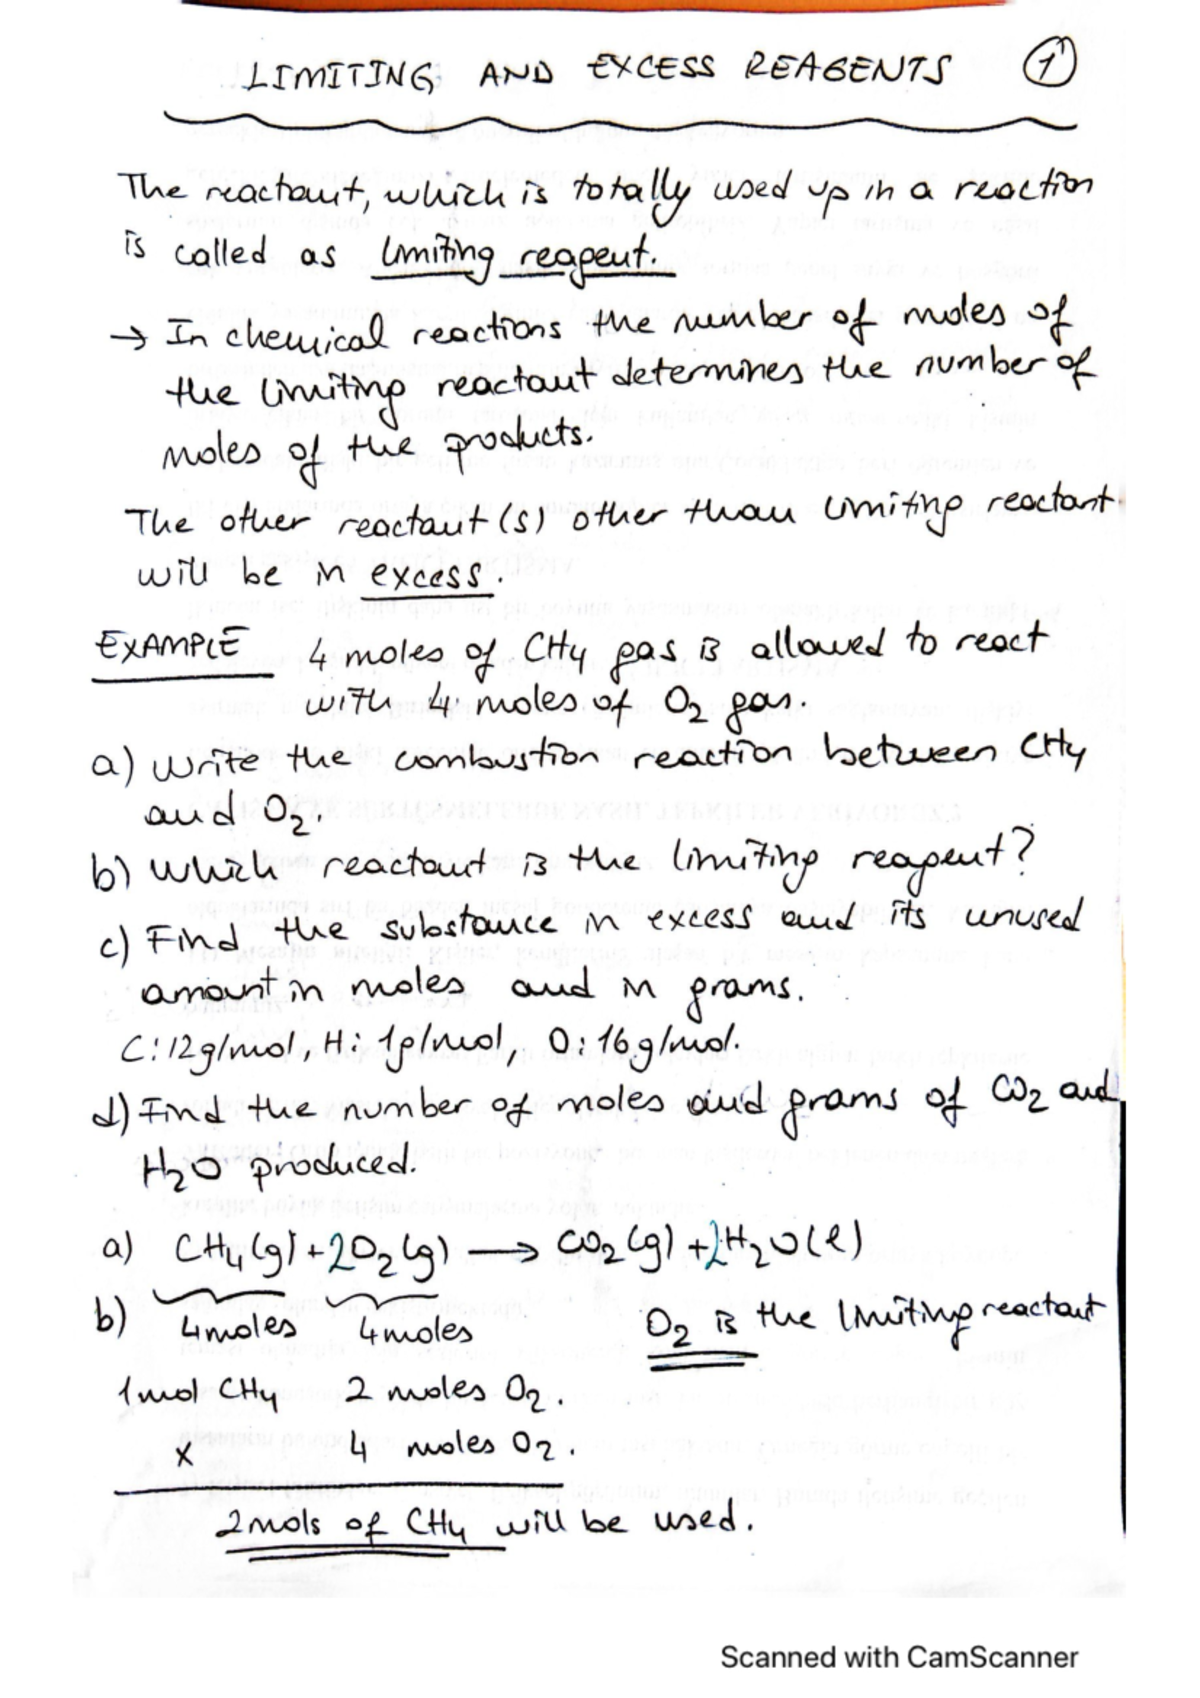 LIMITING AND EXCESS REAGENTS 1
The reactant, which is totally used up in a reaction
is called as limiting reagent.
→ In chemical reactions the number of moles of
the limiting reactant determines the number of
moles of the products.
The other reactant (s) other than limiting reactant
will be in excess.
EXAMPLE 4 moles of CH4 gas is allowed to react
with 4 moles of O2 gas.
a) Write the combustion reaction between CH4
and O2.
b) Which reactant is the limiting reagent?
c) Find the substance in excess and its unused
amount in moles and in grams.
C: 12g/mol, H: 1g/mol, O: 16g/mol.
d) Find the number of moles and grams of CO2 and
H2O produced.
a) CH4(g) + 2O2(g) → CO2(g) + 2H2O(l)
b) 4moles 4moles O2 is the limiting reactant
1 mol CH4 2 moles O2.
x 4 moles O2.
2mols of CH4 will be used.
Scanned with CamScanner